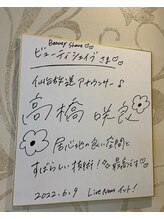 Beauty Shave
ビューティシェイブさま♡
仙台放送アナウンサー♪
高橋咲良
居心地の良い空間と
すばらしい技術!最高です♡
2022.6.9 Live News イット!